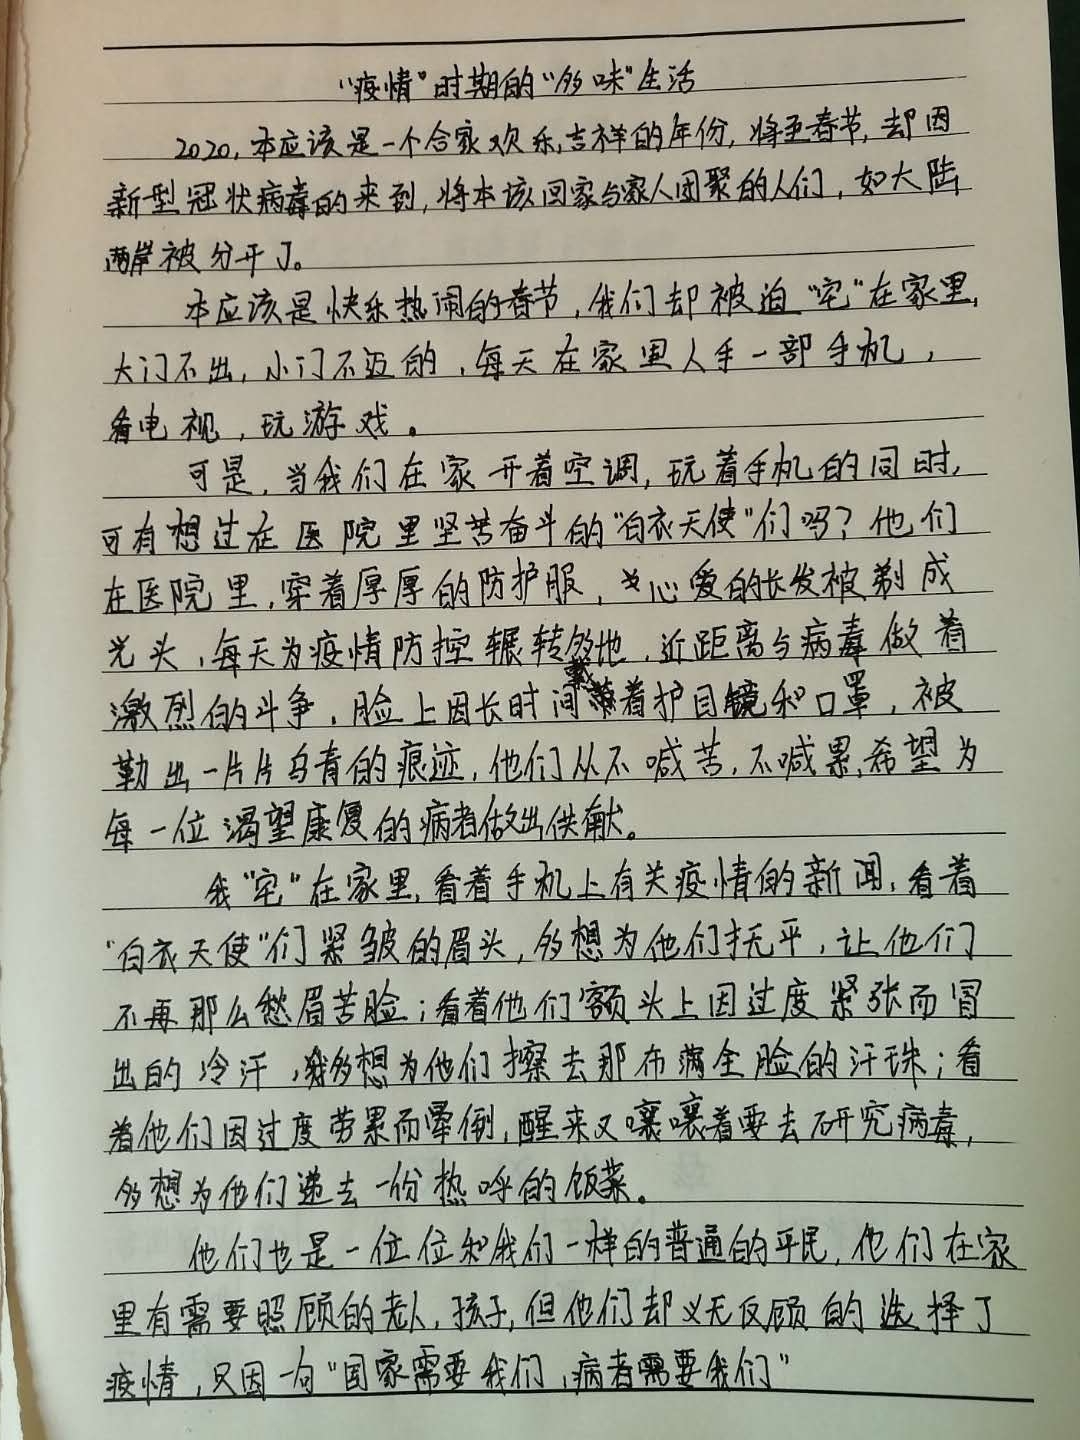 “疫情”时期的“多味”生活
2020，本应该是一个合家欢乐，吉祥的年份，将至春节，却因
新型冠状病毒的来到，将本该回家与家人团聚的人们，如大陆
两岸被分开了。
本应该是快乐热闹的春节，我们却被迫“宅”在家里，
大门不出，小门不迈的，每天在家里人手一部手机，
看电视，玩游戏。
可是，当我们在家开着空调，玩着手机的同时，
可有想过在医院里坚苦奋斗的“白衣天使”们吗？他们
在医院里，穿着厚厚的防护服，心爱的长发被剃成
光头，每天为疫情防控辗转多地，近距离与病毒做着
激烈的斗争，脸上因长时间戴着护目镜和口罩，被
勒出一片片乌青的痕迹，他们从不喊苦，不喊累，希望为
每一位渴望康复的病者做出供献。
我“宅”在家里，看着手机上有关疫情的新闻，看着
“白衣天使”们紧皱的眉头，多想为他们抚平，让他们
不再那么愁眉苦脸；看着他们额头上因过度紧张而冒
出的冷汗，我多想为他们擦去那布满全脸的汗珠；看
着他们因过度劳累而晕倒，醒来又嚷嚷着要去研究病毒，
多想为他们递去一份热呼的饭菜。
他们也是一位位和我们一样的普通的平民，他们在家
里有需要照顾的老人，孩子，但他们却义无反顾的选择了
疫情，只因一句“国家需要我们，病者需要我们”